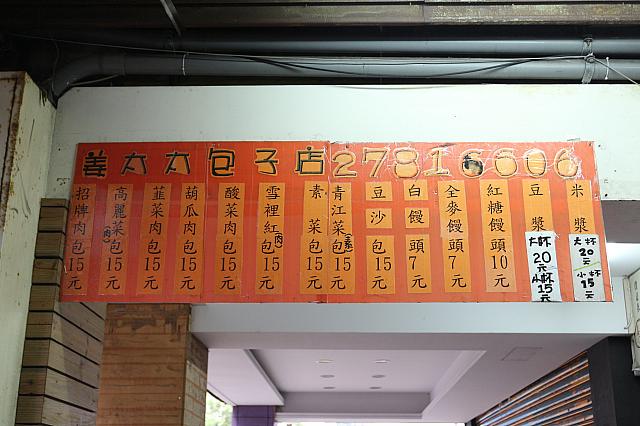 姜太太包子店27816606
招牌肉包15元
高麗菜(肉)包15元
韮菜肉包15元
葫瓜肉包15元
酸菜肉包15元
雪裡紅(肉)包15元
素菜包15元
青江菜(素)包15元
豆沙包15元
白饅頭7元
全麥饅頭7元
紅糖饅頭10元
豆漿大杯20元小杯15元
米漿大杯20元小杯15元